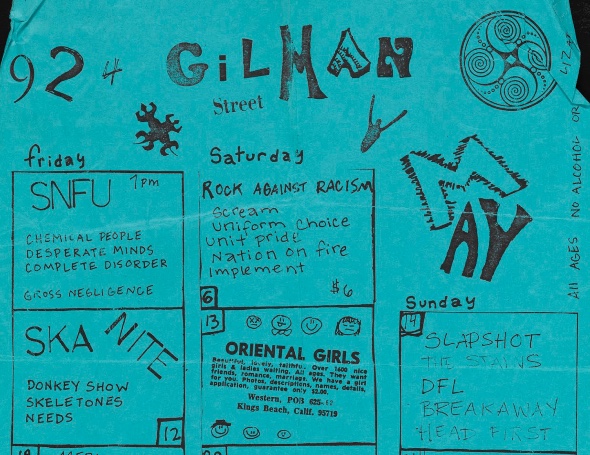 924 GILMAN
Street
friday
SNFU 7pm
CHEMICAL PEOPLE
DESPERATE MINDS
COMPLETE DISORDER
GROSS NEGLIGENCE
SKA NITE
DONKEY SHOW
SKELETONES
NEEDS
12
Saturday
ROCK AGAINST RACISM
Scream
Uniform Choice
Unit Pride
Nation on fire
Implement
$6
6
13
ORIENTAL GIRLS
Beautiful, lovely, faithful. Over 1600 nice
girls & ladies waiting. All ages. They want
friends, romance, marriage. We have a girl
for you. Photos, descriptions, names, details,
application, guarantee only $2.00.
Western, POB 625-
Kings Beach, Calif. 95719
MAY
Sunday
14
SLAPSHOT
THE STAINS
DFL
BREAKAWAY
HEAD FIRST
ALL AGES NO ALCOHOL OR